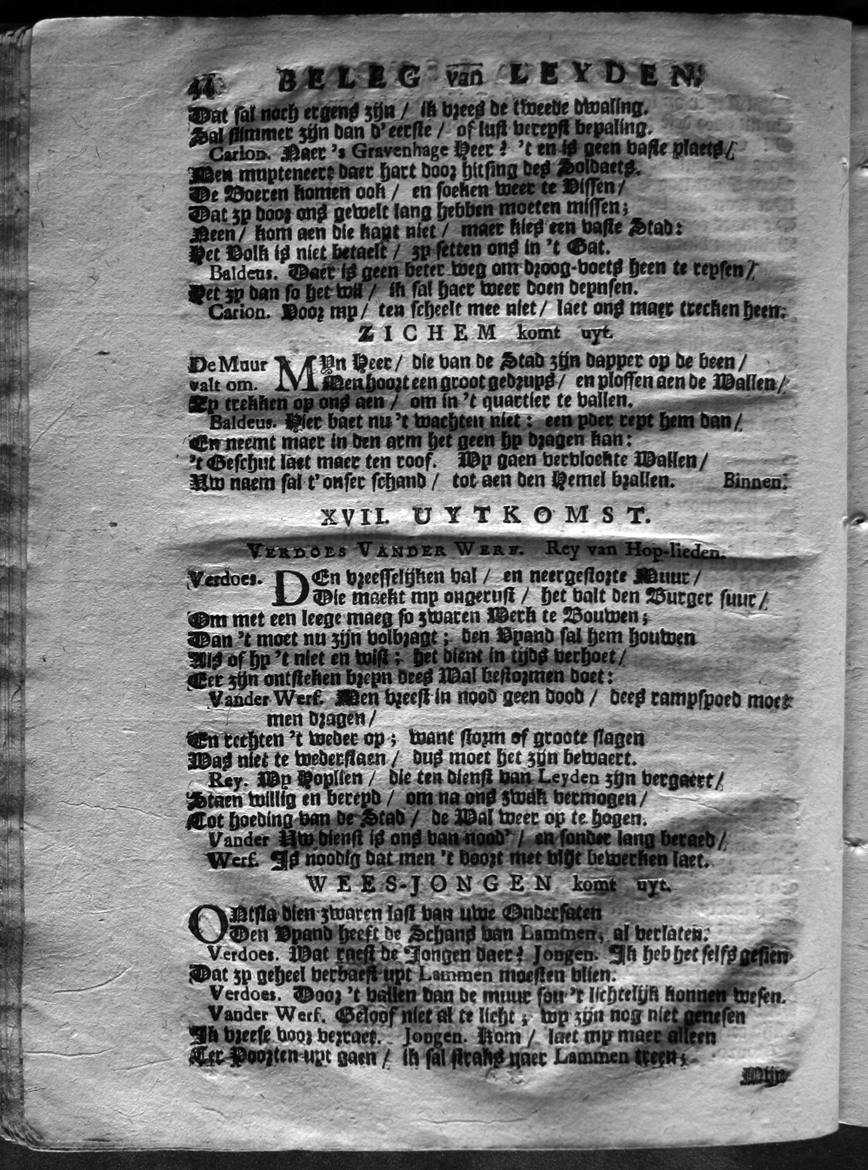 44 BELEG van LEYDEN.
Dat sal noch ergens zijn / ik vrees de tweede dwaling.
Sal slimmer zijn dan d'eerste / of lust verepst bepaling.
Carion. Naer 's Gravenhage Heer? 't en is geen vaste plaets /
Men mupteneert daer hart door hitsing des Soldaets.
De Boeren komen ook / en soeken weer te Vissen /
Dat zp door ons gewelt lang hebben moeten missen;
Neen / kom aen die kant niet / maer kies een vaste Stad:
Het Volk is niet betaelt / zp setten ons in 't Gat.
Baldeus. Daer is geen beter weg om droog-voets heen te repsen /
Het zp dan so het wil / ik sal haer weer doen depnsen.
Carion. Voor mp / ten scheelt mee niet / laet ons maer trecken heen.
ZICHEM komt uyt.
De Muur MYn Heer / die van de Stad zijn dapper op de been /
valt om. Men hoort een groot gedrups / en ploffen aen de Wallen /
Zp trekken op ons aen / om in 't quartier te vallen.
Baldeus. Hier baet nu 't wachten niet: een pder rept hem dan /
En neemt maer in den arm het geen hp dragen kan:
't Geschut laet maer ten roof. Wp gaen vervloekte Wallen /
Uw naem sal t'onser schand / tot aen den Hemel brallen. Binnen.
XVII. UYTKOMST.
VERDOES VANDER WERF. Rey van Hop-lieden.
Verdoes. DEn vreesselijken val / en neergestorte Muur /
Die maekt mp ongerust / het valt den Burger suur /
Om met een leege maeg so zwaren Werk te Bouwen;
Dan 't moet nu zijn volbragt; den Vpand sal hem houwen
Als of hp 't niet en wist; het dient in tijds verhoet /
Eer zijn ontsteken brepn dees Wal bestormen doet:
Vander Werf. Men vreest in nood geen dood / dees rampspoed moet
men dragen /
En rechten 't weder op; want storm of groote slagen
Was niet te wederstaen / dus moet het zijn bewaert.
Rey. Wp Hoplien / die ten dienst van Leyden zijn vergaert /
Staen willig en berepd / om na ons zwak vermogen /
Tot hoeding van de Stad / de Wal weer op te hogen.
Vander Uw dienst is ons van nood' / en sonder lang beraed /
Werf. Is noodig dat men 't voort met vlijt bewerken laet.
WEES-JONGEN komt uyt.
ONtsla dien zwaren last van uwe Ondersaten
Den Vpand heeft de Schans van Lammen, al verlaten.
Verdoes. Wat raest de Jongen daer? Jongen. Ik heb het selfs gesien
Dat zp geheel verbaest upt Lammen moesten vlien.
Verdoes. Door 't vallen van de muur sou 't lichtelijk konnen wesen.
Vander Werf. Geloof niet al te licht; wp zijn nog niet genesen
Ik vreese voor verraet. Jongen. Kom / laet mp maer alleen
Ter Poorten upt gaen / ik sal straks naer Lammen treen;
Mijn